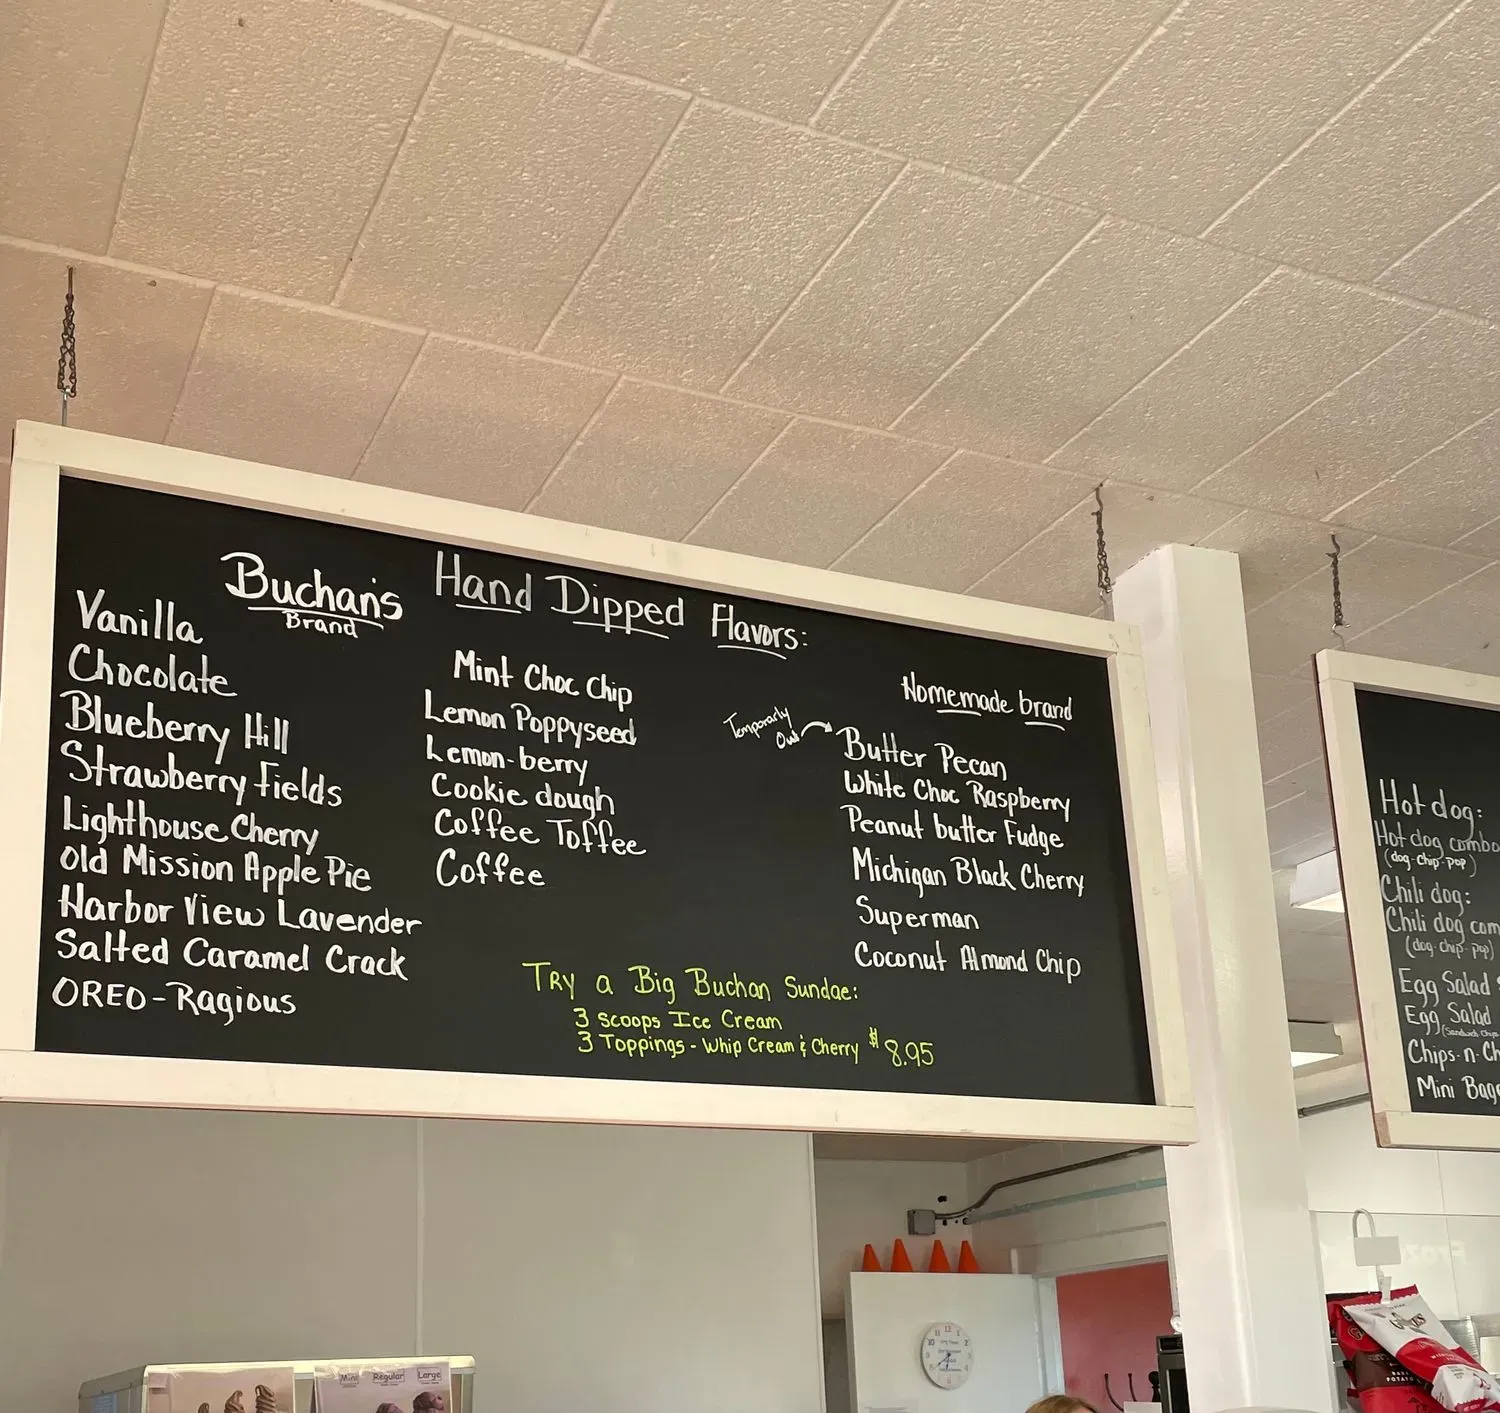 Buchan's
Brand
Hand Dipped Flavors:
Vanilla
Chocolate
Blueberry Hill
Strawberry Fields
Lighthouse Cherry
Old Mission Apple Pie
Harbor View Lavender
Salted Caramel Crack
OREO-Ragious
Mint Choc Chip
Lemon Poppyseed
Lemon-berry
Cookie dough
Coffee Toffee
Coffee
Homemade brand
Temporarly
Out
Butter Pecan
White Choc Raspberry
Peanut butter Fudge
Michigan Black Cherry
Superman
Coconut Almond Chip
Try a Big Buchan Sundae:
3 scoops Ice Cream
3 Toppings - Whip Cream & Cherry $8.95
Hot dog:
Hot dog combo
(dog-chip-pop)
Chili dog:
Chili dog com
(dog-chip-pop)
Egg Salad
Egg Salad
Chips-n-Ch
Mini Bage
Mini
Regular
Large